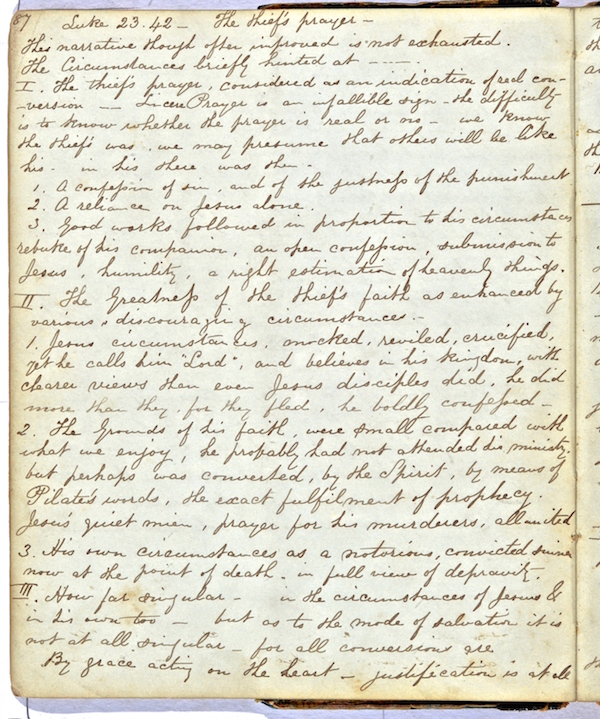 67 Luke 23.42 — The thief's prayer —
This narrative though often improved is not exhausted.
The Circumstances briefly hinted at — — —
I. The thief's prayer, considered as an indication of real con-
-version — Sincere Prayer is an infallible sign — the difficulty
is to know whether the prayer is real or no — we know
the thief's was, we may presume that others will be like
his. in his there was then.
1. A confession of sin, and of the justness of the punishment
2. A reliance on Jesus alone.
3. Good works followed in proportion to his circumstances
rebuke of his companion, an open confession, submission to
Jesus, humility, a right estimation of heavenly things.
II. The Greatness of the thief's faith as enhanced by
various discouraging circumstances. —
1. Jesus circumstances, mocked, reviled, crucified,
yet he calls him "Lord", and believes in his kingdom, with
clearer views then even Jesus disciples did, he did
more than they, for they fled, he boldly confessed —
2. The Grounds of his faith, were small compared with
what we enjoy, he probably had not attended his ministry.
but perhaps was converted, by the Spirit, by means of
Pilate's words, the exact fulfilment of prophecy.
Jesus' quiet mien, prayer for his murderers, all united
3. His own circumstances as a notorious, convicted sinner
now at the point of death. in full view of depravity.
III. How far singular — in the circumstances of Jesus &
in his own too — but as to the mode of salvation it is
not at all singular — for all conversions are
By grace acting on the heart — justification is at all